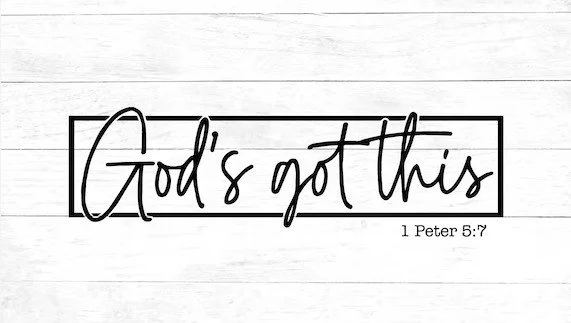 God's got this
1 Peter 5:7